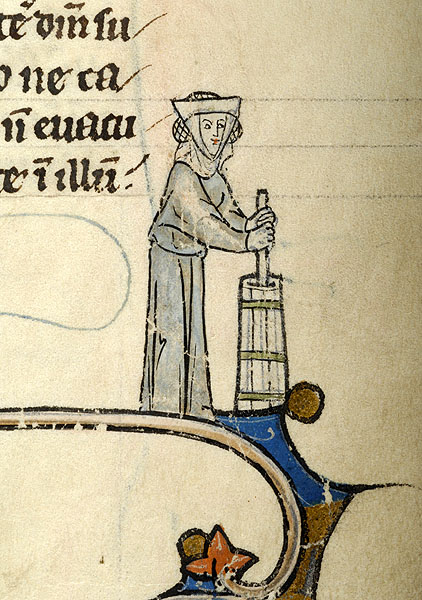 tē dn̄m su/
o ne ca/
n̄ euacu/
te ī illū: